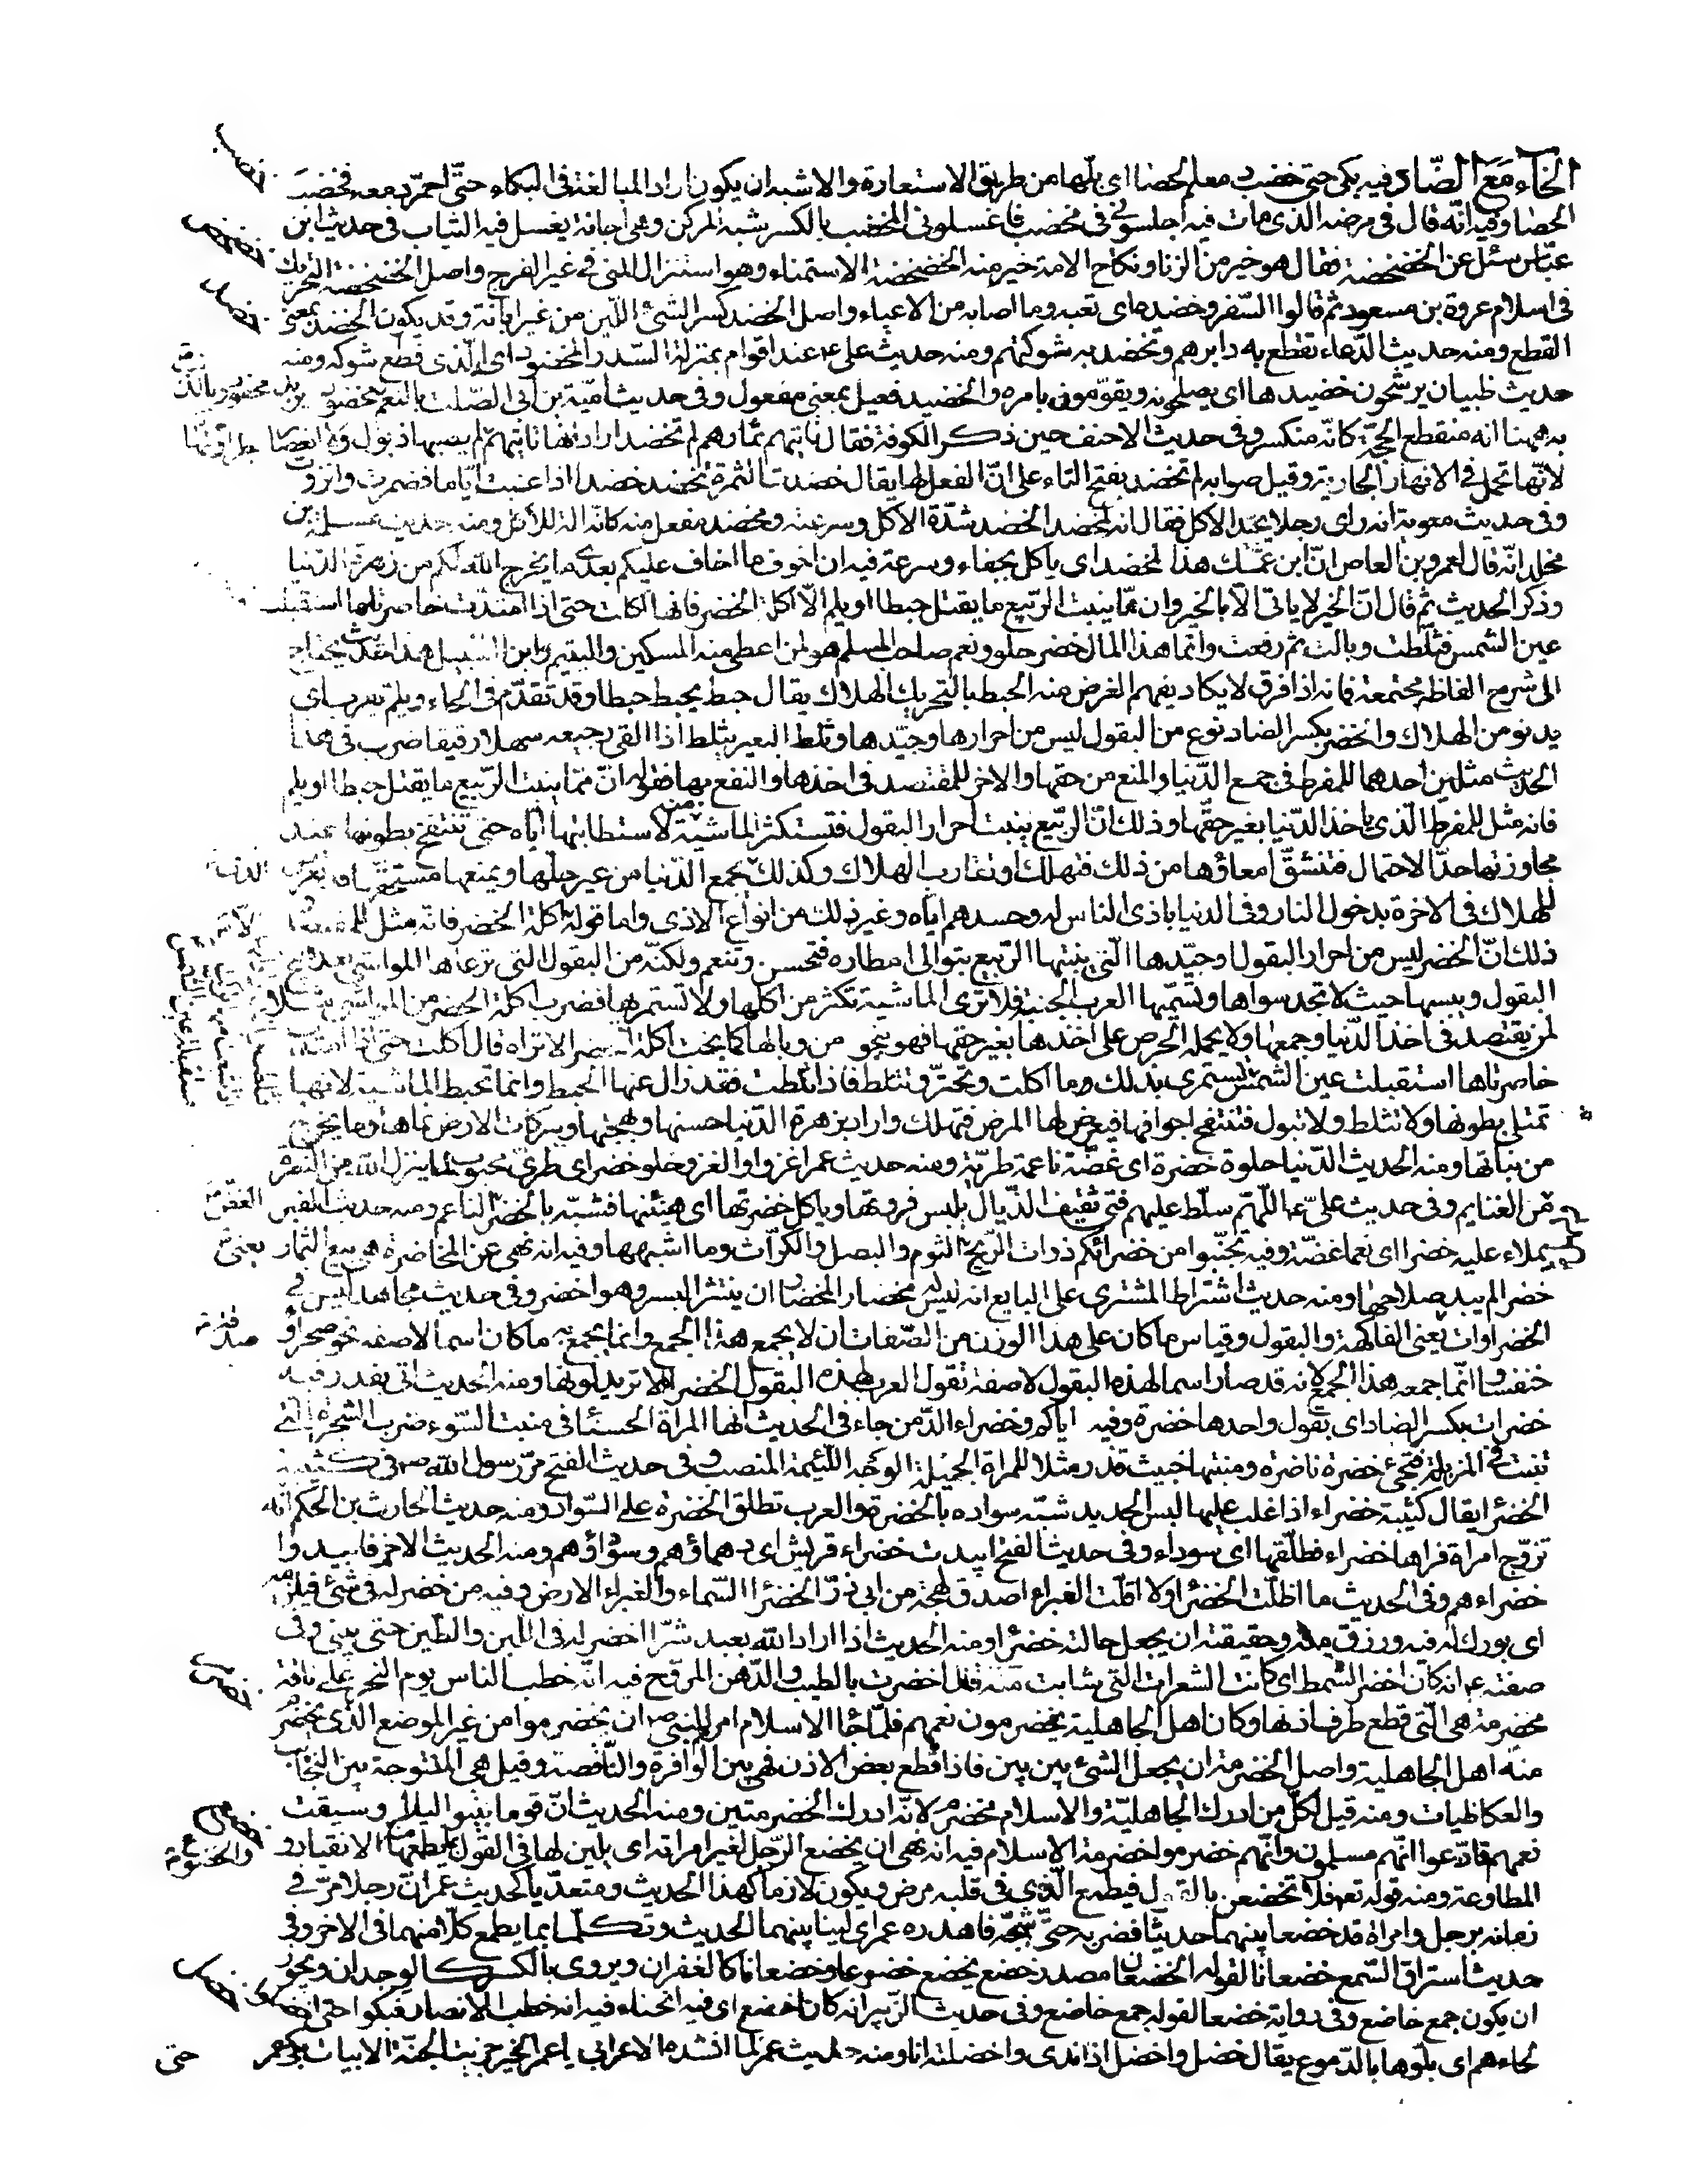 الخاء مع الضاد فيه بكى حتى خضب دمعه الحصا اى بلها من طريق الاستعارة والاشبه ان يكون اراد المبالغة فى البكاء حتى احمر دمعه فخضب
الحصا وفيه انه قال فى مرضه الذى مات فيه اجلسونى فى مخضب فاغسلونى المخضب بالكسر شبه المركن وهى اجانة يغسل فيه الثياب فى حديث ابن
عباس سئل عن الخضخضة فقال هو خير من الزنا ونكاح الامة خير منه الخضخضة الاستمناء وهو استنزال المنى فى غير الفرج واصل الخضخضة التحريك
فى اسلام عروة بن مسعود ثم قالوا السفر وخضده اى تعبه وما اصابه من الاعياء واصل الخضد كسر الشئ اللين من غير ابانة وقد يكون الخضد بمعنى
القطع ومنه حديث الدعاء تقطع به دابرهم وتخضد به شوكتهم ومنه حديث على ع عند اقوام بمنزلة السدر المخضود اى الذى قطع شوكه ومنه
حديث ظبيان يرشحون خضيدها اى يصلحونه ويقومون بامره والخضيد فعيل بمعنى مفعول وفى حديث امية بن ابى الصلت بالنعم مخضود
به ههنا انه منقطع الحجة كانه منكسر وفى حديث الاحنف حين ذكر الكوفة فقال تاتيهم ثمارهم لم تخضد اراد انها تاتيهم لم يصبها ذبول ولا انعصار
لانها تحمل فى الانهار الجارية وقيل صوابه لم تخضد بفتح التاء على ان الفعل لها يقال خضدت الثمرة تخضد خضدا اذا غبت اياما فضمرت وانزوت
وفى حديث معوية انه راى رجلا يجيد الاكل فقال انه لمخضد الخضد شدة الاكل وسرعته ومخضد مفعل منه كانه الة للاكل ومنه حديث مسلمة بن
مخلد انه قال لعمرو بن العاص ان ابن عمك هذا لمخضد اى ياكل بجفاء وسرعة فيه ان اخوف ما اخاف عليكم بعدى ما يخرج الله لكم من زهرة الدنيا
وذكر الحديث ثم قال ان الخير لا ياتى الا بالخير وان مما ينبت الربيع ما يقتل حبطا او يلم الا اكلة الخضر فانها اكلت حتى اذا امتدت خاصرتاها استقبلت
عين الشمس فثلطت وبالت ثم رتعت وانما هذا المال خضر حلو ونعم صاحب المسلم هو لمن اعطى منه المسكين واليتيم وابن السبيل هذا حديث يحتاج
الى شرح الفاظه مجتمعة فانه اذا فرق لا يكاد يفهم الغرض منه الحبط بالتحريك الهلاك يقال حبط يحبط حبطا وقد تقدم فى الحاء ويلم يقرب اى
يدنو من الهلاك والخضر بكسر الضاد نوع من البقول ليس من احرارها وجيدها وثلط البعير يثلط اذا القى رجيعه سهلا رقيقا ضرب فى هذا
الحديث مثلين احدهما للمفرط فى جمع الدنيا والمنع من حقها والاخر للمقتصد فى اخذها والنفع بها فقوله ان مما ينبت الربيع ما يقتل حبطا او يلم
فانه مثل للمفرط الذى ياخذ الدنيا بغير حقها وذلك ان الربيع ينبت احرار البقول فتستكثر الماشية منه لاستطابتها اياه حتى تنتفخ بطونها عند
مجاوزتها حد الاحتمال فتنشق امعاؤها من ذلك فتهلك او تقارب الهلاك وكذلك يجمع الدنيا من غير حلها ويمنعها مستحقها
للهلاك فى الاخرة بدخول النار وفى الدنيا باذى الناس له وحسدهم اياه وغير ذلك من انواع الاذى واما قوله الا اكلة الخضر فانه مثل للمقتصد
ذلك ان الخضر ليس من احرار البقول وجيدها التى ينبتها الربيع بتوالى امطاره فتحسن وتنعم ولكنه من البقول التى ترعاها المواشى بعد
البقول ويبسها حيث لا تجد سواها وتسميها العرب الجنبة فلا ترى الماشية تكثر من اكلها ولا تستمرئها فضرب اكلة الخضر من المواشى مثلا
لمن يقتصد فى اخذ الدنيا وجمعها ولا يحمله الحرص على اخذها بغير حقها فهو ينجو من وبالها كما نجت اكلة الخضر الا تراه قال اكلت حتى اذا امتدت
خاصرتاها استقبلت عين الشمس تستمرى بذلك وما اكلت وتجتر وتثلط فاذا ثلطت فقد زال عنها الحبط وانما تحبط الماشية لانها
تمتلى بطونها ولا تثلط ولا تبول فتنتفخ اجوافها فيعرض لها المرض فتهلك واراد بزهرة الدنيا حسنها وبهجتها وببركات الارض نماها وما يخرج
من نباتها ومنه الحديث الدنيا حلوة خضرة اى غضة ناعمة طرية ومنه حديث عمر اغزوا والغزو حلو خضر اى طرى محبوب لما ينزل الله من النصر
من الغنايم وفى حديث على ع اللهم سلط عليهم فتى ثقيف الذيال يلبس فروتها وياكل خضرتها اى هنيئها فشبه بالخضر الناعم ومنه حديث القبر
يملاء عليه خضرا اى نعما غضة وفيه تجنبوا من خضرائكم ذوات الريح الثوم والبصل والكراث وما اشبهها وفيه انه نهى عن المخاضرة هى بيع الثمار
خضرا لم يبد صلاحها ومنه حديث اشتراط المشترى على البايع انه ليس له مخضار المخضار ان ينتثر البسر وهو اخضر وفى حديث مجاهد ليس فى
الخضراوات يعنى الفاكهة والبقول وقياس ما كان على هذا الوزن من الصفات ان لا يجمع هذا الجمع وانما يجمع به ما كان اسما لا صفة نحو صحراء
خنفساء وانما جمعه هذا الجمع لانه قد صار اسما لهذه البقول لا صفة تقول العرب لهذه البقول الخضراء لا تريد لونها ومنه الحديث اتى بقدر فيه
خضرات بكسر الضاد اى بقول واحدها خضرة وفيه اياكم وخضراء الدمن جاء فى الحديث انها المراة الحسناء فى منبت السوء ضرب الشجرة التى
تنبت فى المزبلة فتجئ خضرة ناضرة ومنبتها خبيث قذر مثلا للمراة الجميلة الوجه اللئيمة المنصب وفى حديث الفتح مر رسول الله ص فى كتيبته
الخضراء يقال كتيبة خضراء اذا غلب عليها لبس الحديد شبه سواده بالخضرة والعرب تطلق الخضرة على السواد ومنه حديث الحارث بن الحكم انه
تزوج امراة فراها خضراء فطلقها اى سوداء وفى حديث الفتح ابيدت خضراء قريش اى دهماؤهم وسوادهم ومنه الحديث الاخر فابيدوا
خضراءهم وفى الحديث ما اظلت الخضراء ولا اقلت الغبراء اصدق لهجة من ابى ذر الخضراء السماء والغبراء الارض وفيه من خضر له فى شئ فليلزمه
اى بورك له فيه ورزق منه وحقيقته ان يجعل حالته خضراء ومنه الحديث اذا اراد الله بعبد شرا اخضر له فى اللبن والطين حتى يبنى وفى
صفته ع انه كان اخضر الشمط اى كانت الشعرات التى شابت منه قد اخضرت بالطيب والدهن المروح فيه انه خطب الناس يوم النحر على ناقة
مخضرمة هى التى قطع طرف اذنها وكان اهل الجاهلية يخضرمون نعمهم فلما جاء الاسلام امرهم النبى ص ان يخضرموا من غير الموضع الذى يخضرم
منه اهل الجاهلية واصل الخضرمة ان يجعل الشئ بين بين فاذا قطع بعض الاذن فهى بين الوافرة والناقصة وقيل هى المنتوجة بين النجايب
والعكاظيات ومنه قيل لكل من ادرك الجاهلية والاسلام مخضرم لانه ادرك الخضرمتين ومنه الحديث ان قوما بيتوا ليلا وسيقت
نعمهم فادعوا انهم مسلمون وانهم خضرموا خضرمة الاسلام فيه انه نهى ان يخضع الرجل لغير امراته اى يلين لها فى القول بما يطمعها الانقياد و
المطاوعة ومنه قوله تعه فلا تخضعن بالقول فيطمع الذى فى قلبه مرض ويكون لازما كهذا الحديث ومتعديا كحديث عمر ان رجلا مر فى
زمانه برجل وامراة قد خضعا بينهما حديثا فضربه حتى شجه فاهدره عمر اى لينا بينهما الحديث وتكلما بما يطمع كلا منهما فى الاخر وفى
حديث استراق السمع خضعانا لقوله الخضعان مصدر خضع يخضع خضوعا وخضعانا كالغفران ويروى بالكسر كالوجدان ويجوز
ان يكون جمع خاضع وفى رواية خضعا لقوله جمع خاضع وفى حديث الزبير انه كان اخضع اى فيه انحناء فيه انه خطب الانصار فبكوا حتى اخضلوا
لحاءهم اى بلوها بالدموع يقال خضل واخضل اذا ندى واخضلته انا ومنه حديث عمر لما انشده الاعرابى يا عمر الخير جزيت الجنة الابيات بكى عمر
حتى